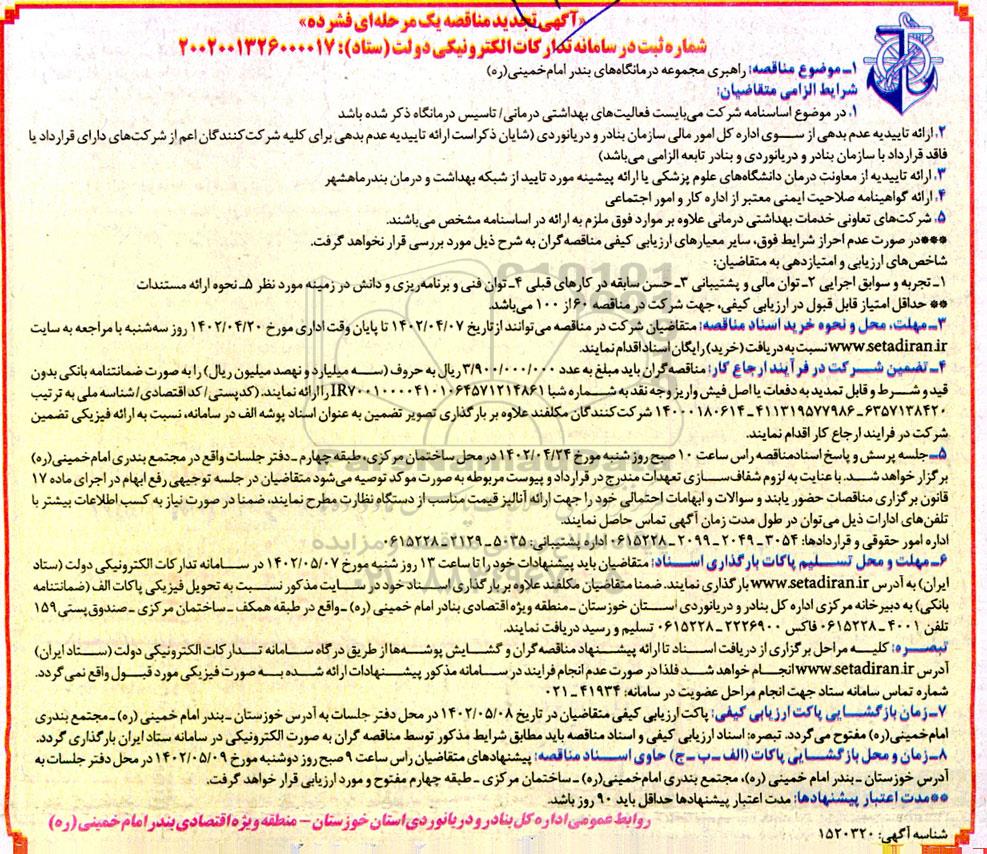 «آگهی تجدید مناقصه یک مرحله‌ای فشرده»
شماره ثبت در سامانه تدارکات الکترونیکی دولت (ستاد): ۲۰۰۲۰۰۱۳۲۶۰۰۰۰۱۷
۱ـ موضوع مناقصه: راهبری مجموعه درمانگاه‌های بندر امام‌خمینی(ره)
شرایط الزامی متقاضیان:
۱. در موضوع اساسنامه شرکت می‌بایست فعالیت‌های بهداشتی درمانی/ تاسیس درمانگاه ذکر شده باشد
۲. ارائه تاییدیه عدم بدهی از سوی اداره کل امور مالی سازمان بنادر و دریانوردی (شایان ذکر است ارائه تاییدیه عدم بدهی برای کلیه شرکت‌کنندگان اعم از شرکت‌های دارای قرارداد یا
فاقد قرارداد با سازمان بنادر و دریانوردی و بنادر تابعه الزامی می‌باشد)
۳. ارائه تاییدیه از معاونت درمان دانشگاه‌های علوم پزشکی یا ارائه پیشینه مورد تایید از شبکه بهداشت و درمان بندرماهشهر
۴. ارائه گواهینامه صلاحیت ایمنی معتبر از اداره کار و امور اجتماعی
۵. شرکت‌های تعاونی خدمات بهداشتی درمانی علاوه بر موارد فوق ملزم به ارائه در اساسنامه مشخص می‌باشند.
***در صورت عدم احراز شرایط فوق، سایر معیارهای ارزیابی کیفی مناقصه‌گران به شرح ذیل مورد بررسی قرار نخواهد گرفت.
شاخص‌های ارزیابی و امتیازدهی به متقاضیان:
۱ـ تجربه و سوابق اجرایی ۲ـ توان مالی و پشتیبانی ۳ـ حسن سابقه در کارهای قبلی ۴ـ توان فنی و برنامه‌ریزی و دانش در زمینه مورد نظر ۵ـ نحوه ارائه مستندات
** حداقل امتیاز قابل قبول در ارزیابی کیفی، جهت شرکت در مناقصه ۶۰ از ۱۰۰ می‌باشد.
۳ـ مهلت، محل و نحوه خرید اسناد مناقصه: متقاضیان شرکت در مناقصه می‌توانند از تاریخ ۱۴۰۲/۰۴/۰۷ تا پایان وقت اداری مورخ ۱۴۰۲/۰۴/۲۰ روز سه‌شنبه با مراجعه به سایت
www.setadiran.ir نسبت به دریافت (خرید) رایگان اسناد اقدام نمایند.
۴ـ تضمین شرکت در فرآیند ارجاع کار: مناقصه‌گران باید مبلغ به عدد ۳/۹۰۰/۰۰۰/۰۰۰ ریال به حروف (سه میلیارد و نهصد میلیون ریال) را به صورت ضمانتنامه بانکی بدون
قید و شرط و قابل تمدید به دفعات یا اصل فیش واریز وجه نقد به شماره شبا IR۷۰۰۱۰۰۰۰۴۱۰۱۰۶۴۵۷۱۲۱۴۸۶۱ را ارائه نمایند. (کدپستی/ کد اقتصادی/ شناسه ملی به ترتیب
۶۳۵۷۱۳۸۴۲۰ـ۴۱۱۳۱۹۵۷۷۹۸۶ـ۱۴۰۰۰۱۸۰۶۱۴ شرکت‌کنندگان مکلفند علاوه بر بارگذاری تصویر تضمین به عنوان اسناد پوشه الف در سامانه، نسبت به ارائه فیزیکی تضمین
شرکت در فرایند ارجاع کار اقدام نمایند.
۵ـ جلسه پرسش و پاسخ اسناد مناقصه راس ساعت ۱۰ صبح روز شنبه مورخ ۱۴۰۲/۰۴/۲۴ در محل ساختمان مرکزی، طبقه چهارم ـ دفتر جلسات واقع در مجتمع بندری امام‌خمینی(ره)
برگزار خواهد شد. با عنایت به لزوم شفاف‌سازی تعهدات مندرج در قرارداد و پیوست مربوطه به صورت موکد توصیه می‌شود متقاضیان در جلسه توجیهی رفع ابهام در اجرای ماده ۱۷
قانون برگزاری مناقصات حضور یابند و سوالات و ابهامات احتمالی خود را جهت ارائه آنالیز قیمت مناسب از دستگاه نظارت مطرح نمایند، ضمنا در صورت نیاز به کسب اطلاعات بیشتر با
تلفن‌های ادارات ذیل می‌توان در طول مدت زمان آگهی تماس حاصل نمایند.
اداره امور حقوقی و قراردادها: ۳۰۵۴ـ۲۰۴۹ـ۲۰۹۹ـ۰۶۱۵۲۲۸ اداره پشتیبانی: ۵۰۳۵ـ۲۱۲۹ـ۰۶۱۵۲۲۸
۶ـ مهلت و محل تسلیم پاکات بارگذاری اسناد: متقاضیان باید پیشنهادات خود را تا ساعت ۱۳ روز شنبه مورخ ۱۴۰۲/۰۵/۰۷ در سامانه تدارکات الکترونیکی دولت (ستاد
ایران) به آدرس www.setadiran.ir بارگذاری نمایند. ضمنا متقاضیان مکلفند علاوه بر بارگذاری اسناد خود در سایت مذکور نسبت به تحویل فیزیکی پاکات الف (ضمانتنامه
بانکی) به دبیرخانه مرکزی اداره کل بنادر و دریانوردی استان خوزستان ـ منطقه ویژه اقتصادی بنادر امام خمینی (ره) ـ واقع در طبقه همکف ـ ساختمان مرکزی ـ صندوق پستی ۱۵۹
تلفن ۴۰۰۱ـ۰۶۱۵۲۲۸ فاکس ۲۲۲۶۹۰۰ـ۰۶۱۵۲۲۸ تسلیم و رسید دریافت نمایند.
تبصره: کلیه مراحل برگزاری از دریافت اسناد تا ارائه پیشنهاد مناقصه‌گران و گشایش پوشه‌ها از طریق درگاه سامانه تدارکات الکترونیکی دولت (ستاد ایران)
آدرس www.setadiran.ir انجام خواهد شد فلذا در صورت عدم انجام فرایند در سامانه مذکور پیشنهادات ارائه شده به صورت فیزیکی مورد قبول واقع نمی گردد.
شماره تماس سامانه ستاد جهت انجام مراحل عضویت در سامانه: ۴۱۹۳۴ـ۰۲۱
۷ـ زمان بازگشایی پاکت ارزیابی کیفی: پاکت ارزیابی کیفی متقاضیان در تاریخ ۱۴۰۲/۰۵/۰۸ در محل دفتر جلسات به آدرس خوزستان ـ بندر امام خمینی (ره) ـ مجتمع بندری
امام‌خمینی(ره) مفتوح می‌گردد. تبصره: اسناد ارزیابی کیفی و اسناد مناقصه باید مطابق شرایط مذکور توسط مناقصه گران به صورت الکترونیکی در سامانه ستاد ایران بارگذاری گردد.
۸ـ زمان و محل بازگشایی پاکات (الف ـ ب ـ ج) حاوی اسناد مناقصه: پیشنهادهای متقاضیان راس ساعت ۹ صبح روز دوشنبه مورخ ۱۴۰۲/۰۵/۰۹ در محل دفتر جلسات به
آدرس خوزستان ـ بندر امام خمینی (ره)، مجتمع بندری امام‌خمینی(ره) ـ ساختمان مرکزی ـ طبقه چهارم مفتوح و مورد ارزیابی قرار خواهد گرفت.
**مدت اعتبار پیشنهادها: مدت اعتبار پیشنهادها حداقل باید ۹۰ روز باشد.
روابط عمومی اداره کل بنادر و دریانوردی استان خوزستان – منطقه ویژه اقتصادی بندر امام خمینی (ره)
شناسه آگهی: ۱۵۲۰۳۲۰